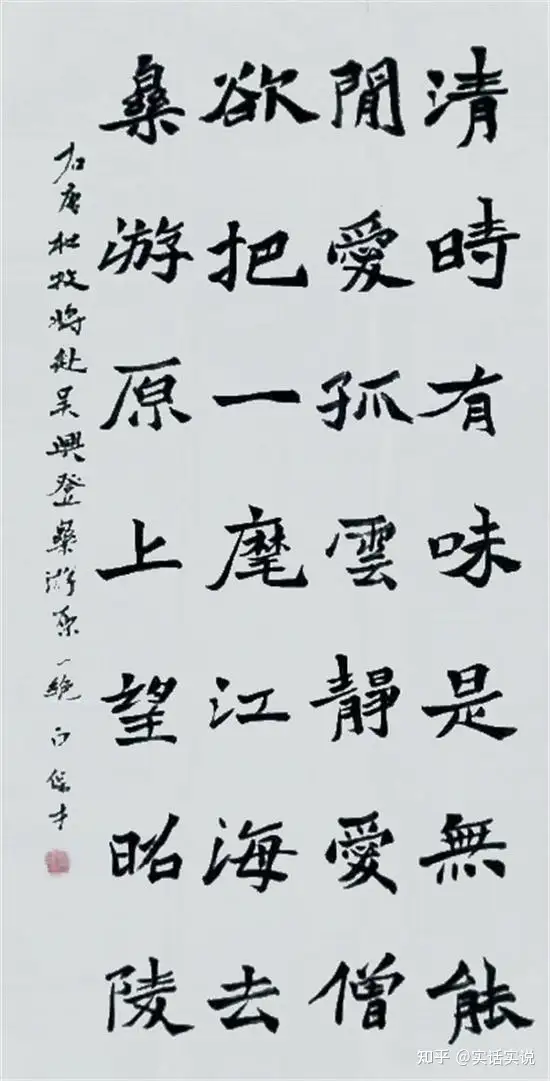 清時有味是無能
閒愛孤雲靜愛僧
欲把一麾江海去
樂游原上望昭陵
右唐杜牧將赴吴興登樂游原一絶 白保才
知乎 @实话实说